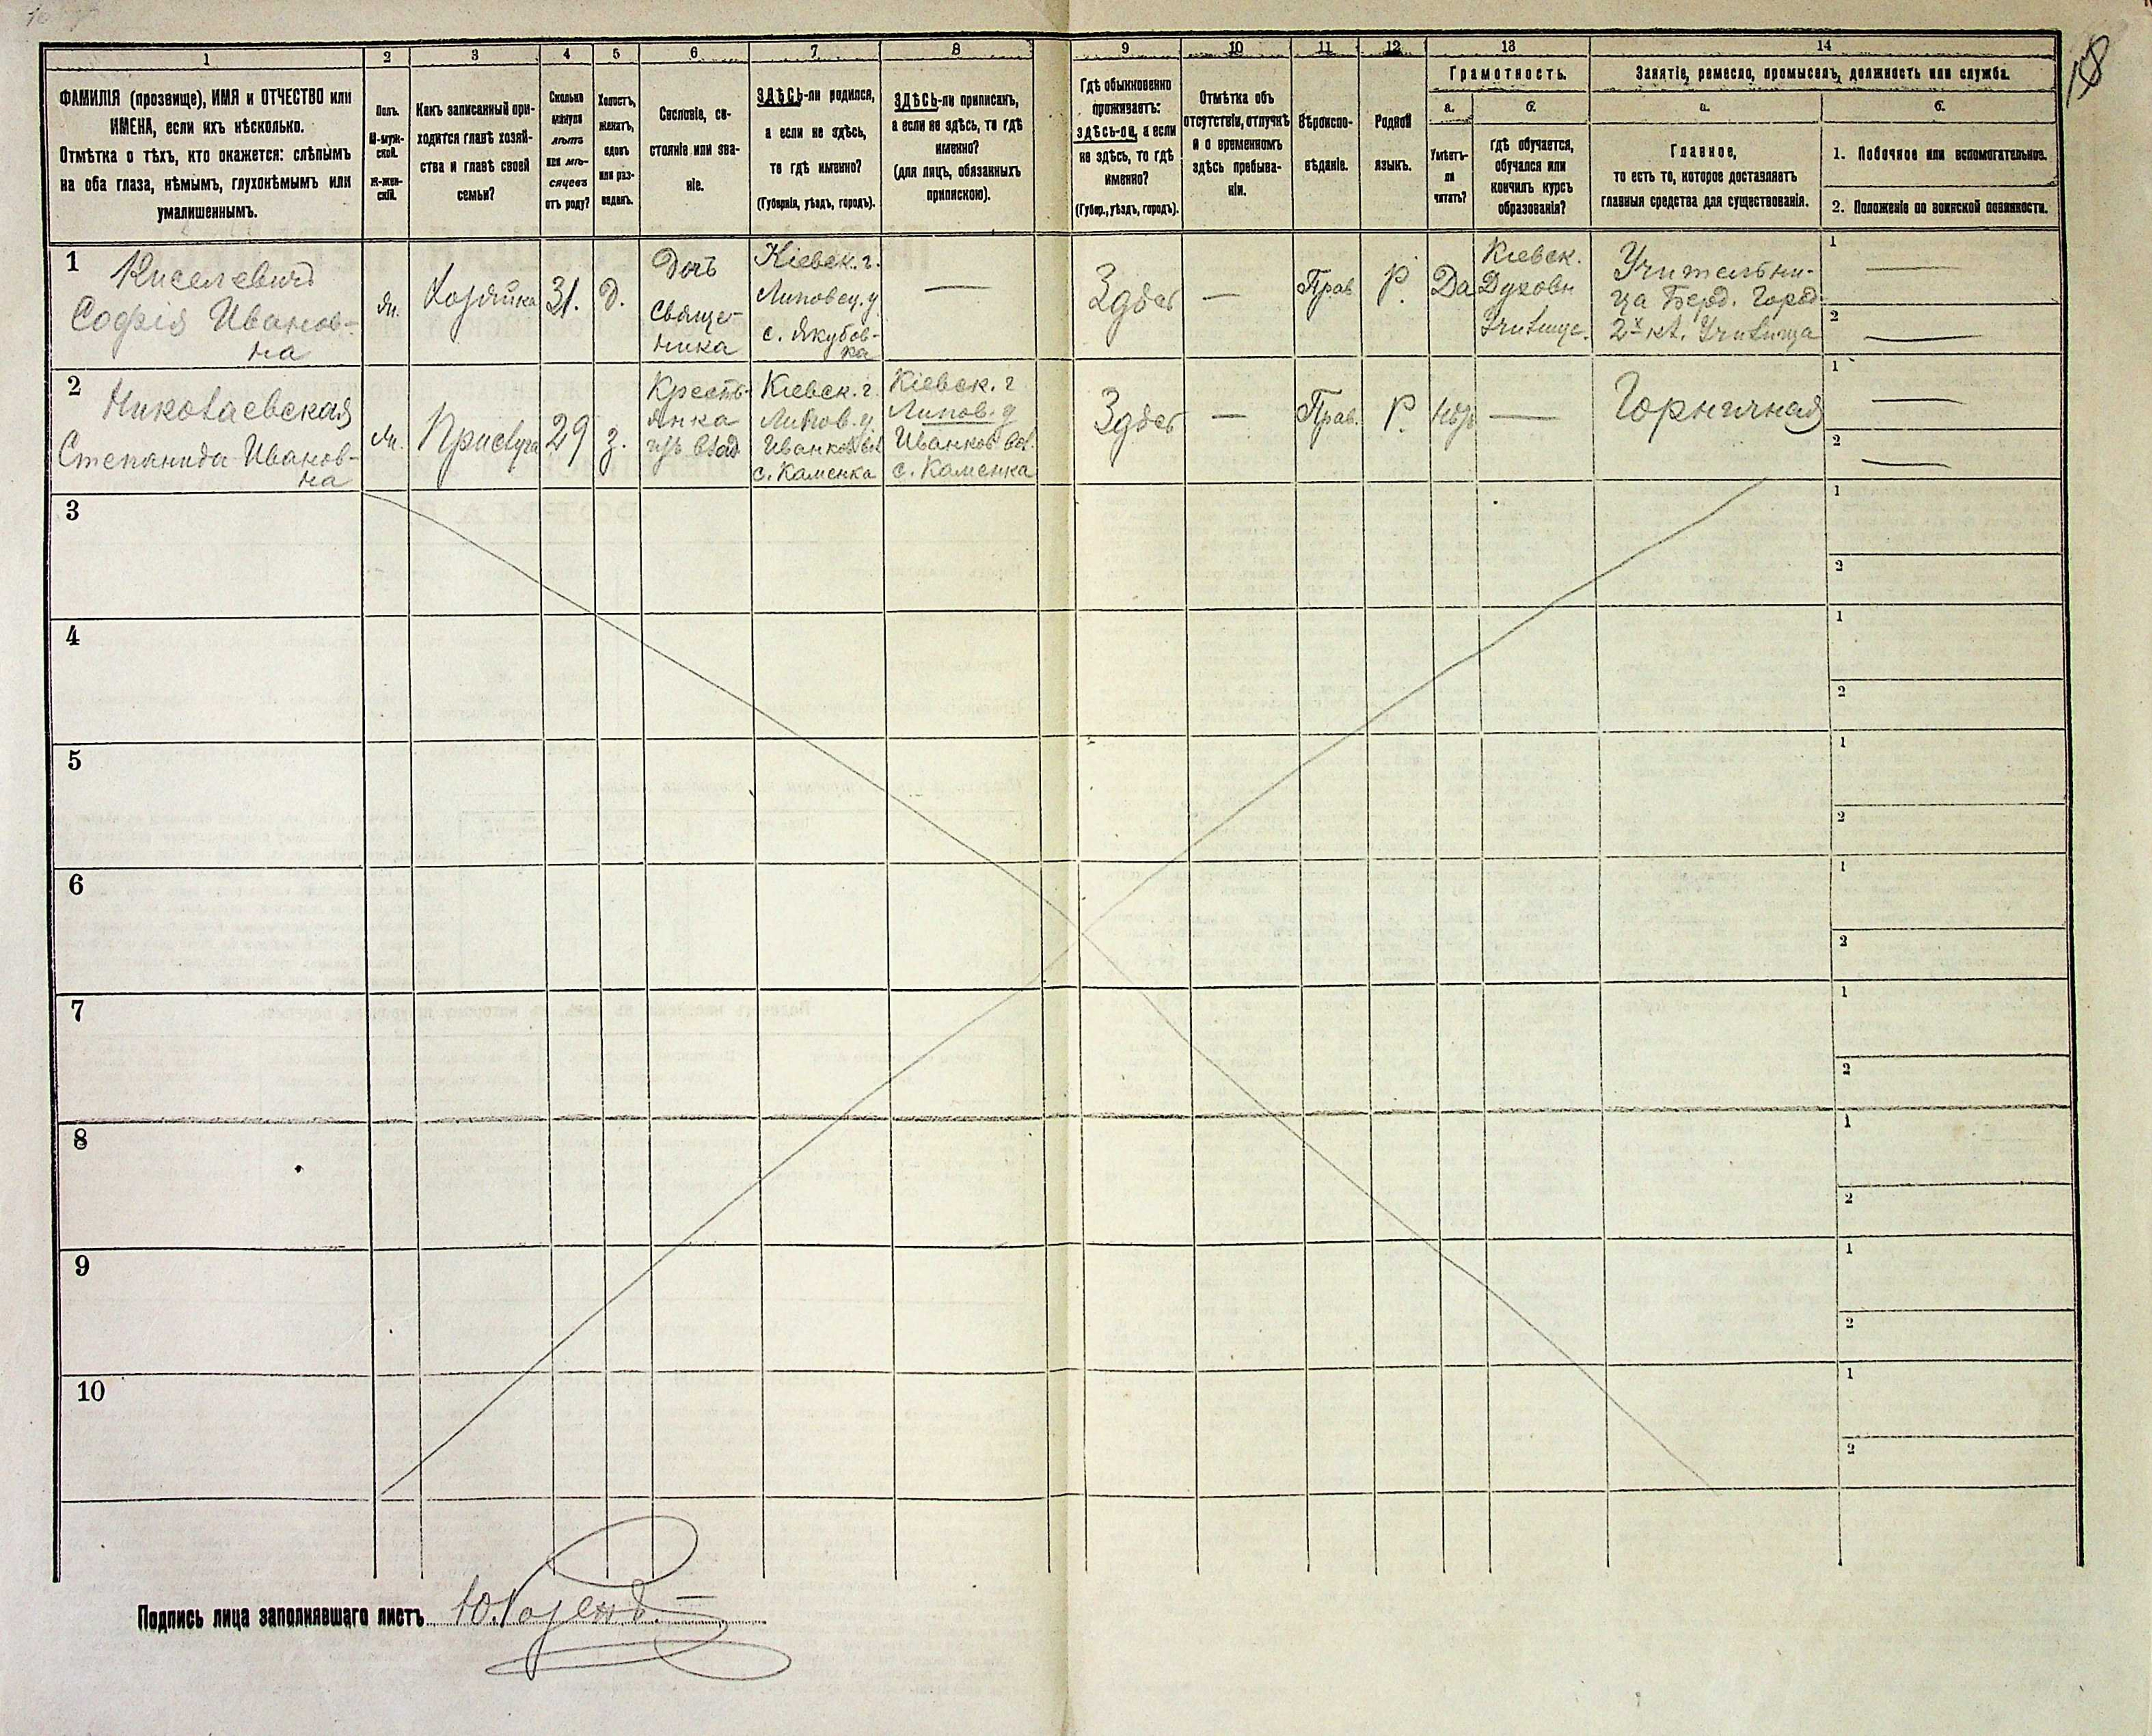 18
1
2
3
4
5
6
7
8
9
10
11
12
13
14
ФАМИЛІЯ (прозвище), ИМЯ и ОТЧЕСТВО или
ИМЕНА, если ихъ нѣсколько.
Отмѣтка о тѣхъ, кто окажется: слѣпымъ
на оба глаза, нѣмымъ, глухонѣмымъ или
умалишеннымъ.
Полъ.
М-муж-
ской.
Ж-жен-
скій.
Какъ записанный при-
ходится главѣ хозяй-
ства и главѣ своей
семьи?
Сколько
минуло
лѣтъ
или мѣ-
сяцевъ
отъ роду?
Холостъ,
женатъ,
вдовъ
или раз-
веденъ.
Сословіе, со-
стояніе или зва-
ніе.
ЗДѢСЬ-ли родился,
а если не здѣсь,
то гдѣ именно?
(Губернія, уѣздъ, городъ).
ЗДѢСЬ-ли приписанъ,
а если не здѣсь, то гдѣ
именно?
(для лицъ, обязанныхъ
припискою).
Гдѣ обыкновенно
проживаетъ:
здѣсь-ли, а если
не здѣсь, то гдѣ
именно?
(Губер., уѣздъ, городъ).
Отмѣтка объ
отсутствіи, отлучкѣ
и о временномъ
здѣсь пребыва-
ніи.
Вѣроиспо-
вѣданіе.
Родной
языкъ.
Грамотность.
а.
Умѣетъ-
ли
читать?
б.
гдѣ обучается,
обучался или
кончилъ курсъ
образованія?
Занятіе, ремесло, промыселъ, должность или служба.
а.
Главное,
то есть то, которое доставляетъ
главныя средства для существованія.
б.
1. Побочное или вспомогательное.
2. Положеніе по воинской повинности.
1
Киселевичъ
Софія Иванов-
на
ж.
Хозяйка
31.
д.
Дочь
Священ-
ника
Кіевск. г.
Липовец. у
с. Якубов-
ка
—
Здѣсь
—
Прав
Р.
Да
Кіевск.
Духовн
Училище.
Учительни-
ца Берд. Город.
2х кл. Училища
1 —
2 —
2
Николаевская
Степанида Иванов-
на
ж.
Прислуга
29
з.
Кресть-
янка
изъ влад
Кіевск. г.
Липов. у.
Иванков. вол
с. Каменка
Кіевск. г
Липов. у
Иванков вол.
с. Каменка
Здѣсь
—
Прав.
Р.
Нѣтъ
—
Горничная
1 —
2 —
3
1
2
4
1
2
5
1
2
6
1
2
7
1
2
8
1
2
9
1
2
10
1
2
Подпись лица заполнявшаго листъ